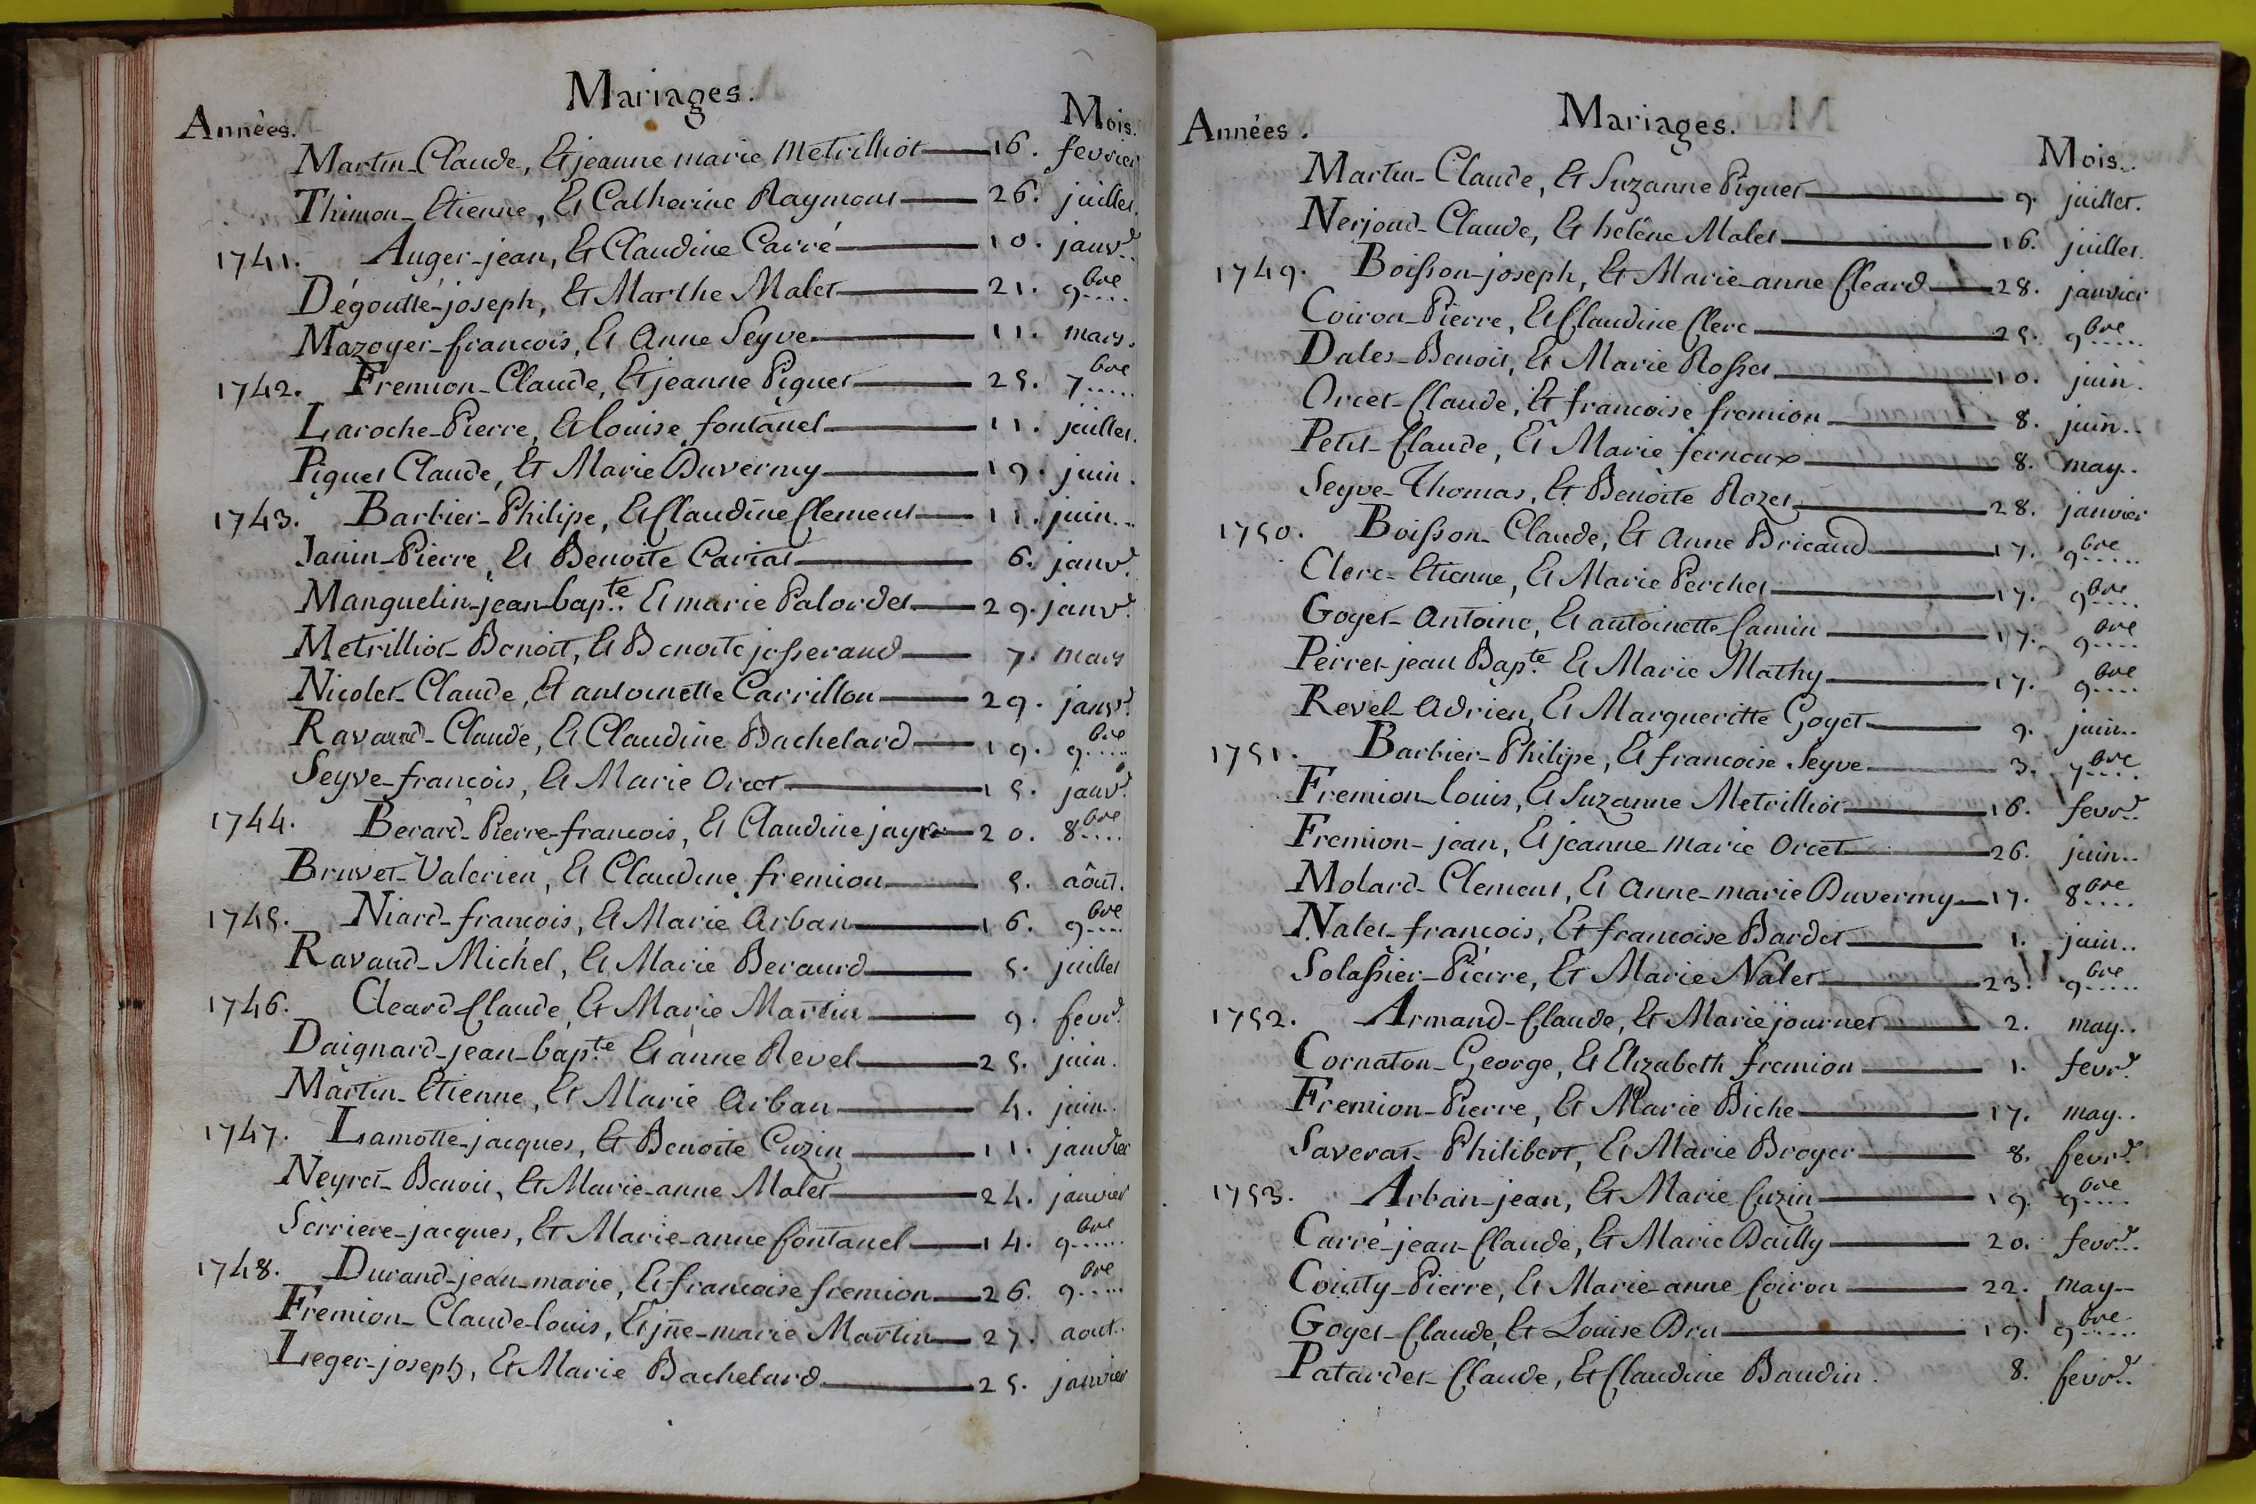 Mariages.
Années. Mois.
Martin-Claude, Et jeanne marie Metrilliot 16. fevrier
Thimon-Etienne, Et Catherine Raymont 26. juillet.
1741. Auger-jean, Et Claudine Carré 10. janvr.
Dégoutte-joseph, Et Marthe Malet 21. 9bre
Mazoyer-francois, Et Anne Seyve 11. mars.
1742. Fremion-Claude, Et jeanne Piguet 25. 7bre
Laroche-Pierre, Et louise fontanel 11. juillet.
Piguet Claude, Et Marie Duvermy 19. juin.
1743. Barbier-Philipe, Et Claudine Clement 11. juin..
Janin-Pierre, Et Benoite Cariat 6. janvr.
Manguelin-jean-bapte. Et marie Palordet 29. janvr.
Metrilliot-Benoit, Et Benoite josserand 7. mars
Nicolet-Claude, Et antoinette Carrillon 29. janvr.
Ravaud-Claude, Et Claudine Bachelard 19. 9bre
Seyve-francois, Et Marie Orcet 15. janvr.
1744. Berard-Pierre-francois, Et Claudine jayr 20. 8bre
Bruvet-Valerien, Et Claudine fremion 5. août.
1745. Niard-francois, Et Marie Arban 16. 9bre
Ravaud-Michel, Et Marie Beraurd 5. juillet
1746. Cleard-Claude, Et Marie Martin 9. fevr.
Daignard-jean-bapte. Et anne Revel 25. juin.
Martin-Etienne, Et Marie Arban 4. juin..
1747. Lamotte-jacques, Et Benoite Cuzin 11. janvier
Neyret-Benoit, Et Marie-anne Malet 24. janvier
Serriere-jacques, Et Marie-anne fontanel 14. 9bre
1748. Durand-jean-marie, Et francoise fremion 26. 9bre
Fremion-Claude-louis, Et jñe-marie Martin 27. aout..
Leger-joseph, Et Marie Bachelard 25. janvier
Mariages.
Années. Mois..
Martin-Claude, Et Suzanne Piguet 9. juillet.
Nerjoud-Claude, Et heléne Malet 16. juillet.
1749. Boisson-joseph, Et Marie-anne Cleard 28. janvier
Coiron-Pierre, Et Claudine Clerc 25. 9bre
Dales-Benoit, Et Marie Rosset 10. juin.
Orcet-Claude, Et francoise fremion 8. juin..
Petit-Claude, Et Marie fernoux 8. may..
Seyve-Thomas, Et Benoite Rozet 28. janvier
1750. Boisson-Claude, Et Anne Bricaud 17. 9bre
Clerc-Etienne, Et Marie Perchet 17. 9bre
Goyet-Antoine, Et antoinette Camin 17. 9bre
Perret-jean Bapte. Et Marie Mathy 17. 9bre
Revel-Adrien, Et Margueritte Goyet 9. juin..
1751. Barbier-Philipe, Et francoise Seyve 3. 7bre
Fremion-louis, Et Suzanne Metrilliot 16. fevr.
Fremion-jean, Et jeanne-marie Orcet 26. juin..
Molard-Clement, Et Anne-marie Duvermy 17. 8bre
Nalet-francois, Et francoise Bardet 1. juin..
Solassier-Pierre, Et Marie Nalet 23. 9bre
1752. Armand-Claude, Et Marie journet 2. may..
Cornaton-George, Et Elizabeth fremion 1. fevr.
Fremion-Pierre, Et Marie Biche 17. may..
Saverat-Philibert, Et Marie Broyer 8. fevr.
1753. Arban-jean, Et Marie Cuzin 19. 9bre
Carré-jean-Claude, Et Marie Bailly 20. fevr.
Pierre, Et Marie-anne Coiron 22. may--
Goyet-Claude, Et Louise Dru 19. 9bre
Patardet-Claude, Et Claudine Baudin. 8. fevr.